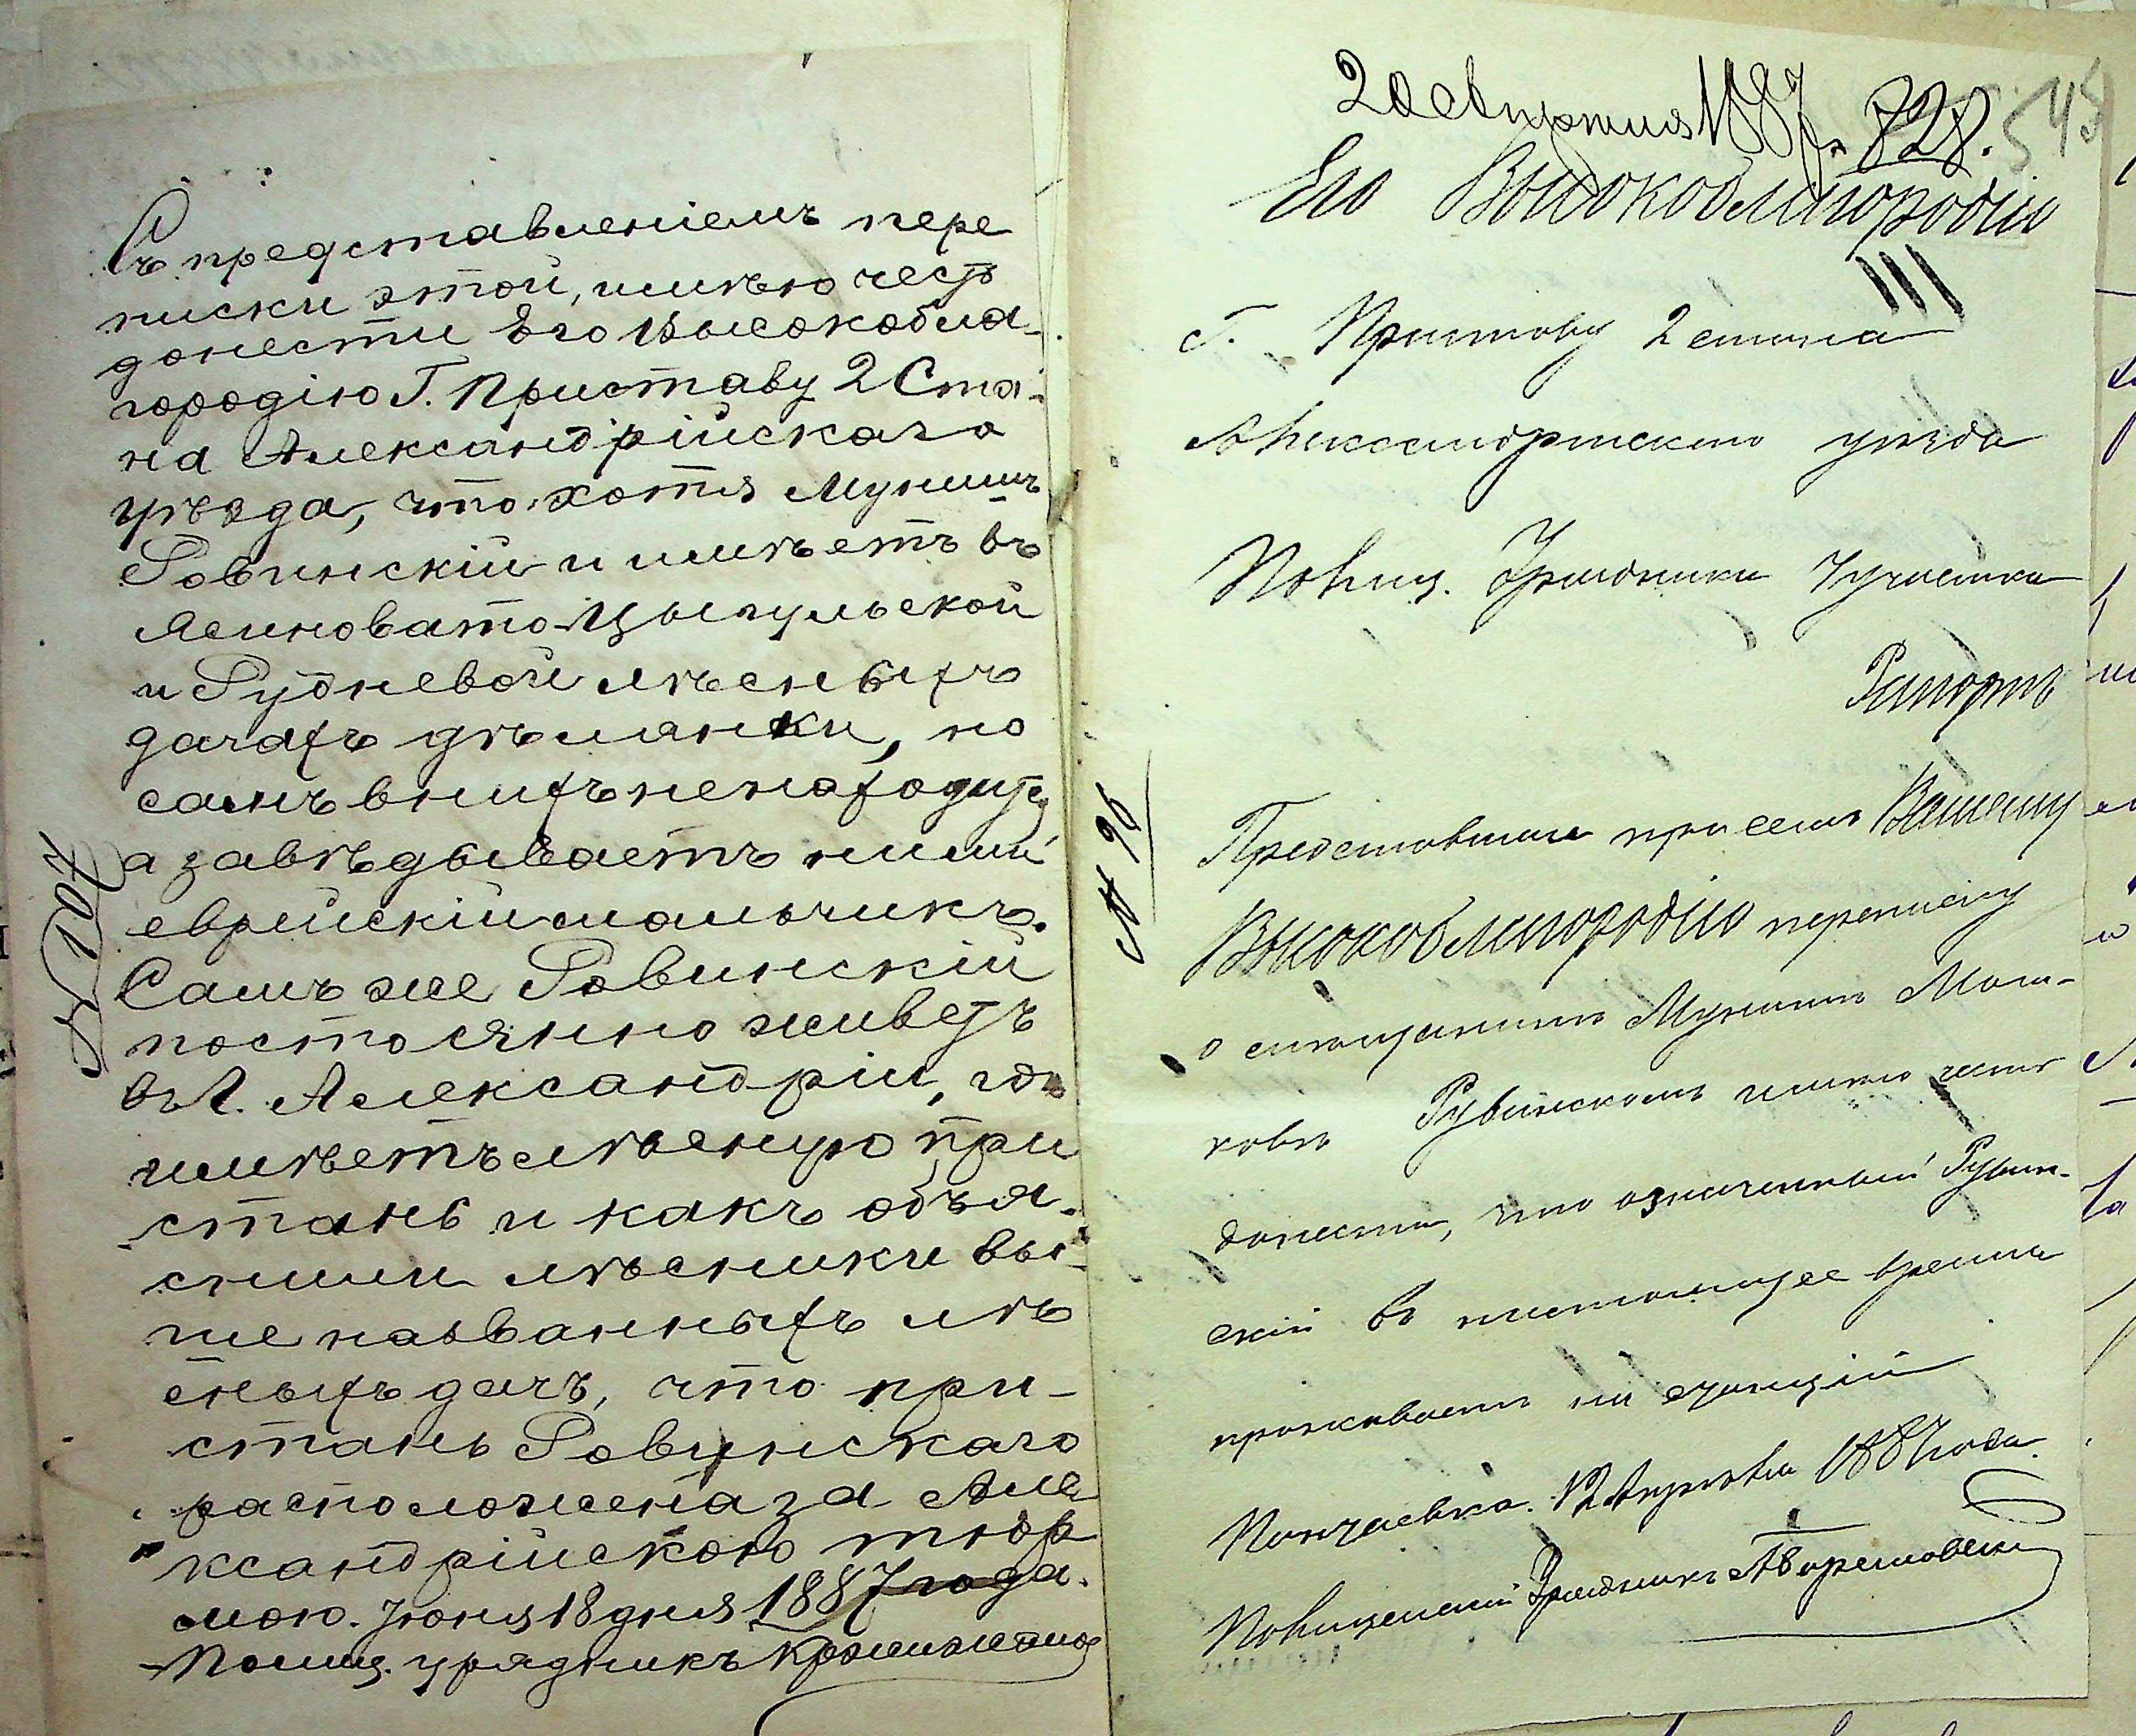 Съ представленіемъ пере
писки этой, имѣю честь
донести Его Высокобла-
городію Г. Приставу 2 Ста-
на Александрійскаго
уѣзда, что хотя Мунишъ
Ровинскій и имѣетъ въ
Ясиновато-Цыгульской
и Рудневой лѣсныхъ
дачахъ дѣлянки, но
самъ в нихъ не находитс
а завѣдываетъ ними
еврейскій мальчикъ.
Самъ же Ровинскій
постоянно живетъ
въ Г. Александріи, гдѣ
имѣетъ лѣсную при
стань и какъ объя-
снили лѣсники вы-
ше названныхъ лѣ
сныхъ дачъ, что при-
стань Ровинскаго
расположена за Але
ксандрійскою тюр
мою. Іюня 18 дня 1887 года.
Полиц. урядникъ
№ 107
20 августа 1887 г. 828.
545
Его Высокоблагородію
Г. Приставу 2 стана
Александрійскаго уѣзда
Полиц. Урядника участка
Рапортъ
№ 96
Представляя при семъ Вашему
Высокоблагородію переписку
о мѣщанинѣ Мунишѣ Мош-
ковѣ Рувинскомъ имѣю честь
донести, что означенный Рувин-
скій въ настоящее время
проживаетъ на станціи
12 Августа 1887 года
Полицейскій Урядникъ